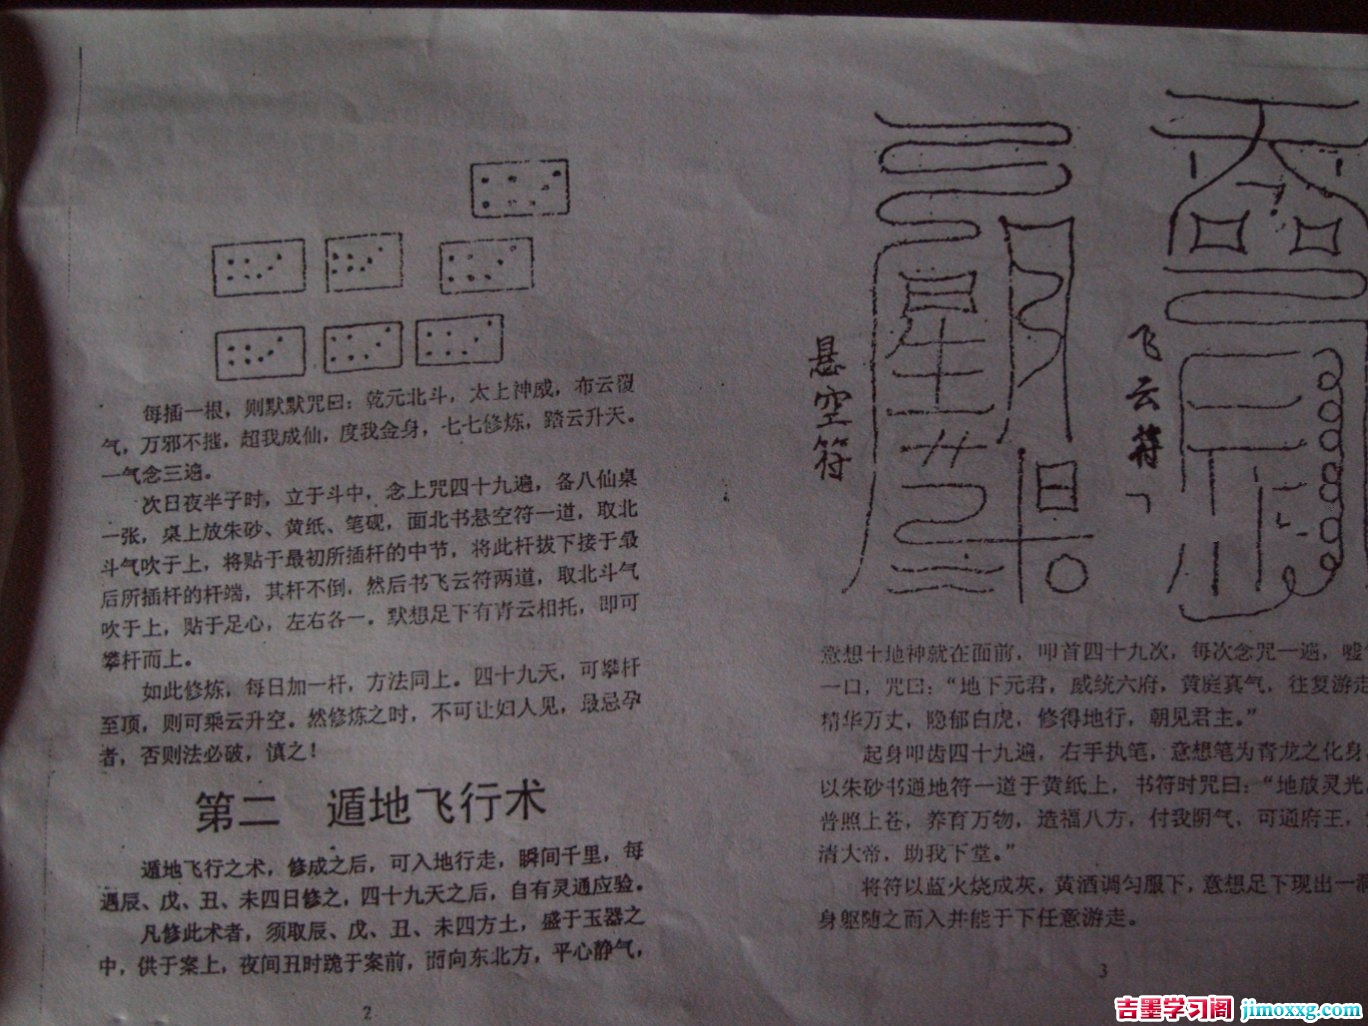 每插一根，则默默咒曰：乾元北斗，太上神威，布云覆
气，万邪不摧，超我成仙，度我金身，七七修炼，踏云升天。
一气念三遍。
次日夜半子时，立于斗中，念上咒四十九遍，备八仙桌
一张，桌上放朱砂、黄纸、笔砚，面北书悬空符一道，取北
斗气吹于上，将贴于最初所插杆的中节，将此杆拔下接于最
后所插杆的杆端，其杆不倒，然后书飞云符两道，取北斗气
吹于上，贴于足心，左右各一。默想足下有青云相托，即可
攀杆而上。
如此修炼，每日加一杆，方法同上。四十九天，可攀杆
至顶，则可乘云升空。然修炼之时，不可让妇人见，最忌孕
者，否则法必破，慎之！
第二 遁地飞行术
遁地飞行之术，修成之后，可入地行走，瞬间千里，每
遇辰、戊、丑、未四日修之，四十九天之后，自有灵通应验。
凡修此术者，须取辰、戊、丑、未四方土，盛于玉器之
中，供于案上，夜间丑时跪于案前，面向东北方，平心静气，
2
悬空符
飞云符
意想土地神就在面前，叩首四十九次，每次念咒一遍，嘘
一口，咒曰：“地下元君，威统六府，黄庭真气，往复游走
精华万丈，隐郁白虎，修得地行，朝见君主。”
起身叩齿四十九遍，右手执笔，意想笔为青龙之化身，
以朱砂书通地符一道于黄纸上，书符时咒曰：“地放灵光，
普照上苍，养育万物，造福八方，付我阴气，可通府王，
清大帝，助我下堂。”
将符以蓝火烧成灰，黄酒调匀服下，意想足下现出一
身躯随之而入并能于下任意游走。
3
吉墨学习阁 jimoxxg.com